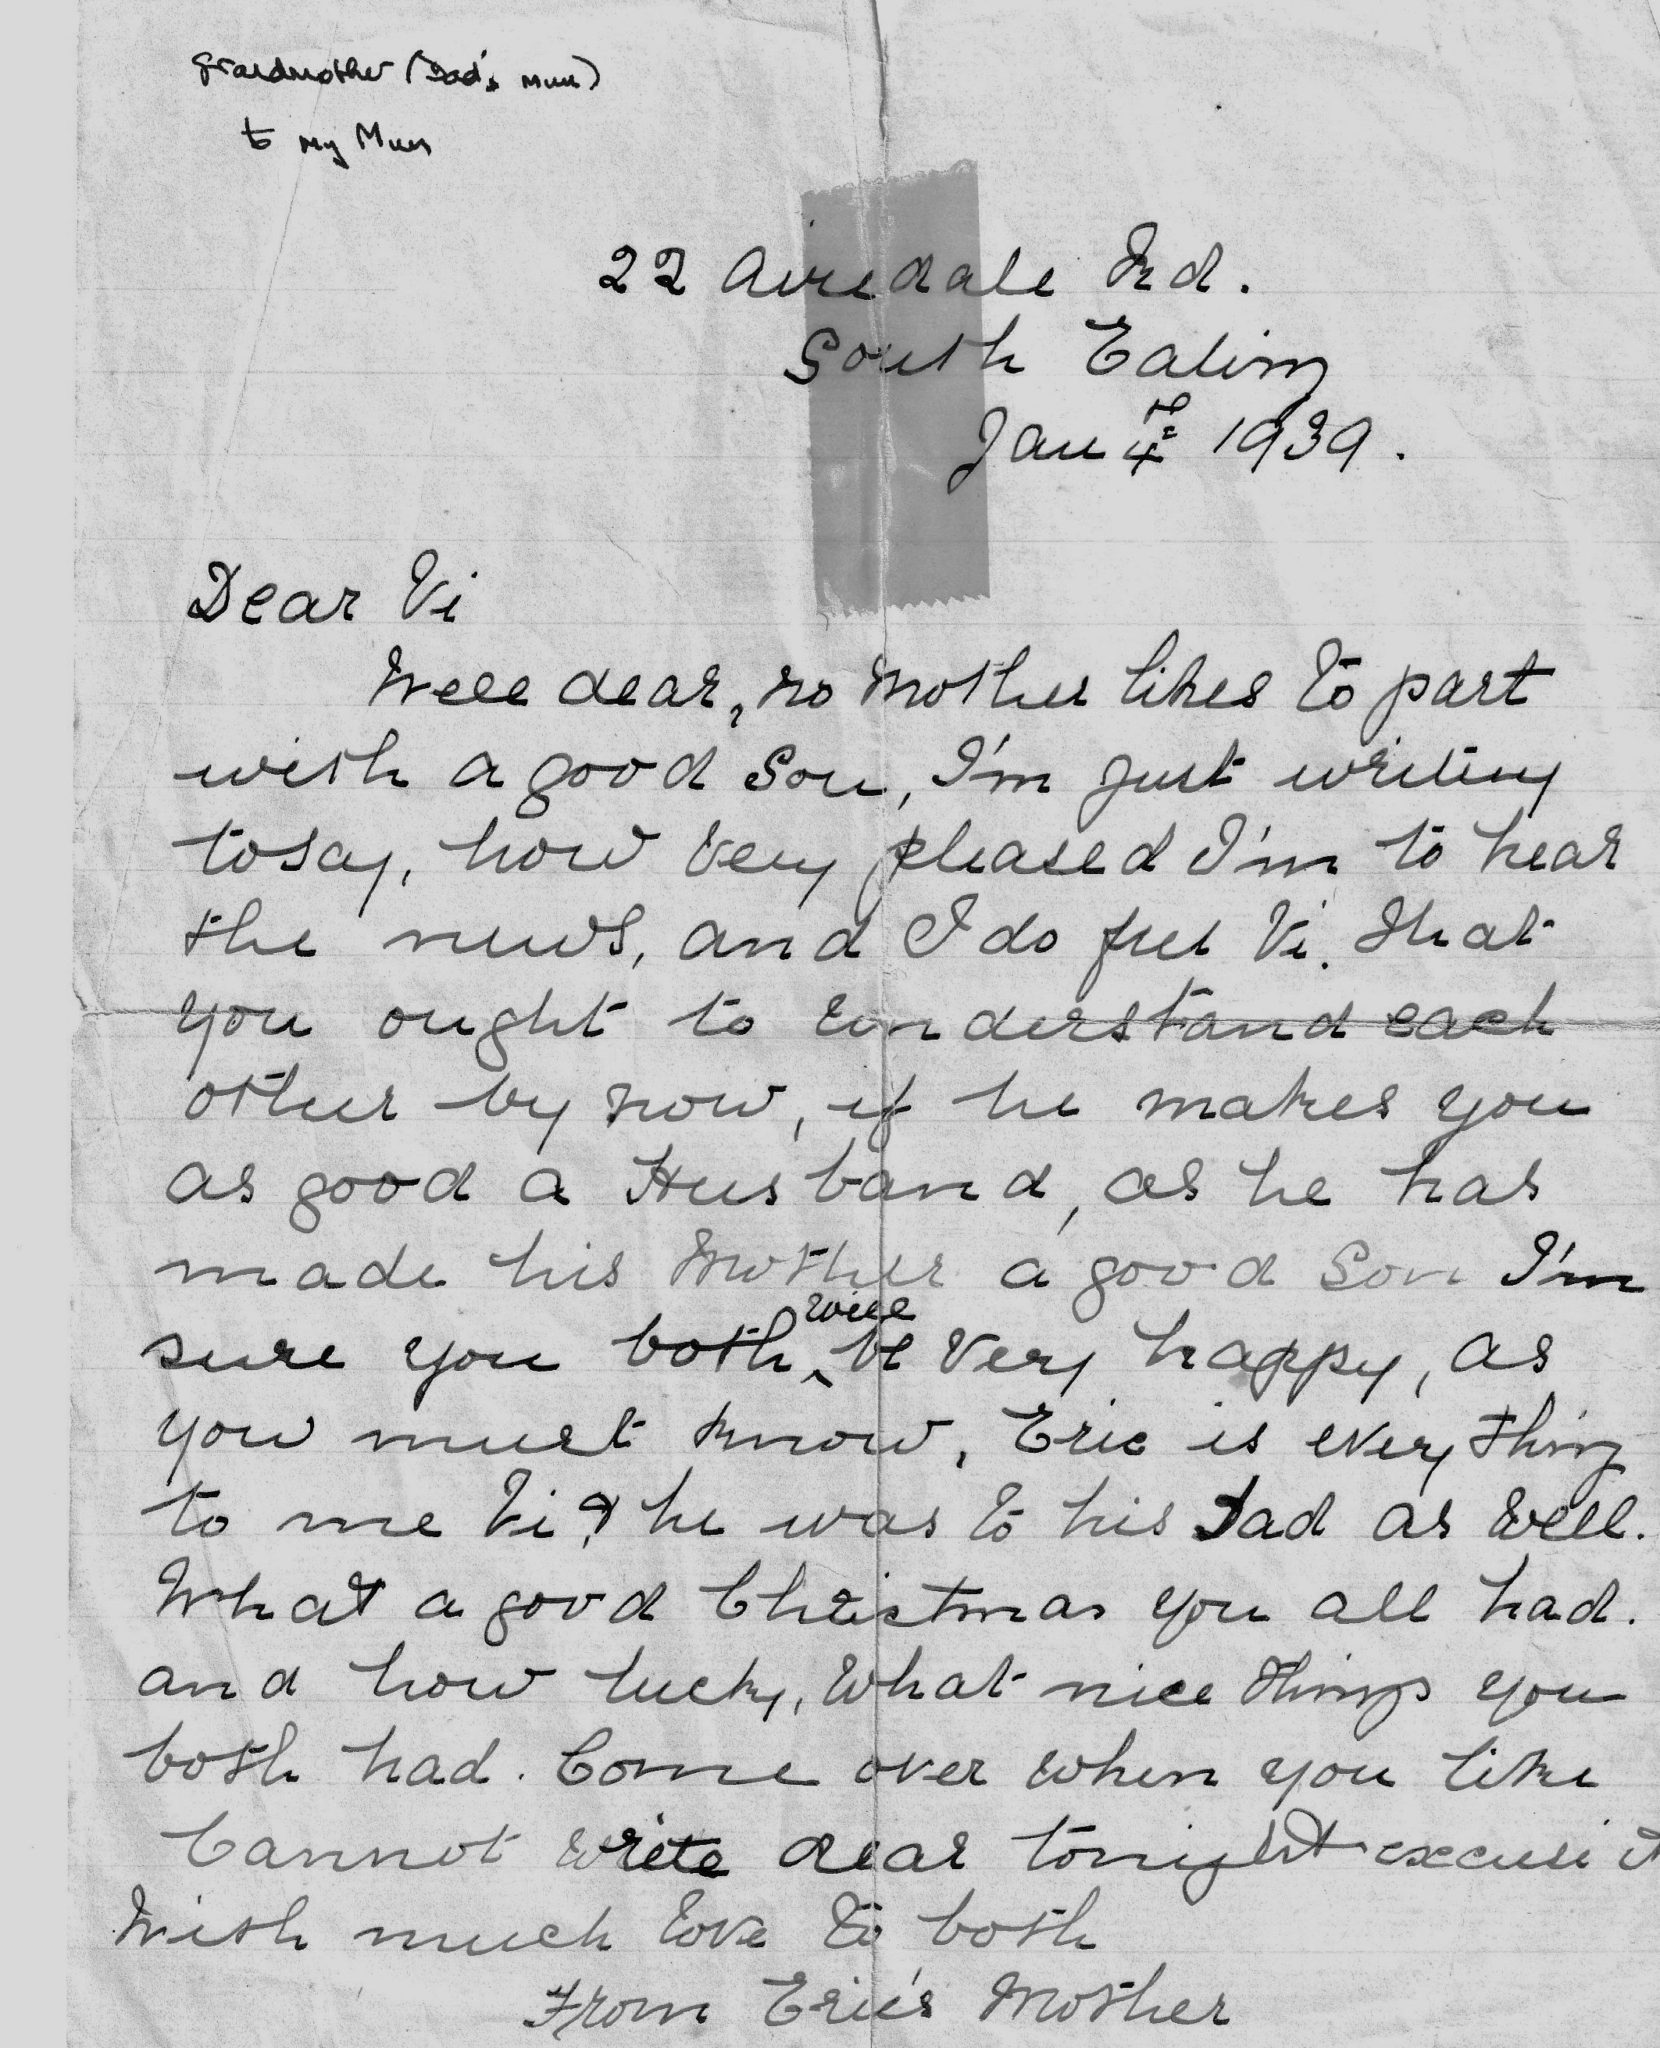 grandmother (Dad's Mum)
to my Mum
22 Airedale Rd.
South Ealing
Jan 4th 1939.
Dear Vi
Well dear, no Mother likes to part
with a good Son, I'm just writing
to say, how very pleased I'm to hear
the news, and I do feel Vi. that
you ought to understand each
other by now, if he makes you
as good a Husband, as he has
made his Mother a good Son I'm
sure you both will be very happy, as
you must know, Eric is every thing
to me Vi & he was to his Dad as well.
What a good Christmas you all had.
and how lucky, what nice things you
both had. Come over when you like
Cannot write dear tonight excuse it
With much love to both
From Eric's Mother